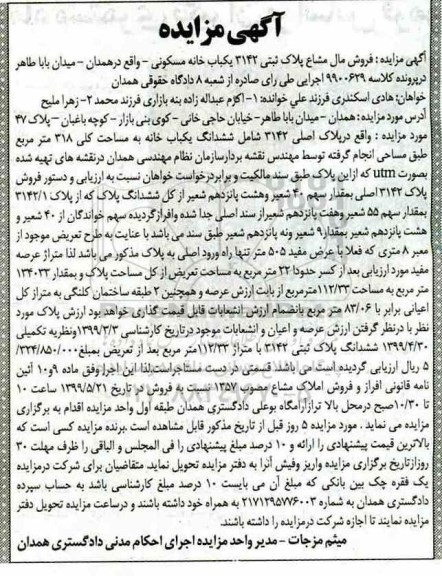 آگهی مزایده
آگهی مزایده : فروش مال مشاع پلاک ثبتی ۳۱۴۲ یکباب خانه مسکونی - واقع درهمدان - میدان بابا طاهر
درپرونده کلاسه ۹۹۰۰۶۲۹ اجرایی طی رای صادره از شعبه ۸ دادگاه حقوقی همدان
خواهان: هادی اسکندری فرزند علي خوانده: ۱- اکرم عبداله زاده بنه بازاری فرزند محمد ۲- زهرا ملیح
آدرس مورد مزایده : همدان - میدان بابا طاهر- خیابان حاجی خانی - کوی بنی بازار - کوچه باغبان - پلاک ۴۷
مورد مزایده : واقع درپلاک اصلی ۳۱۴۲ شامل ششدانگ یکباب خانه به مساحت کلی ۳۱۸ متر مربع
طبق مساحی انجام گرفته توسط مهندس نقشه بردارسازمان نظام مهندسی همدان درنقشه های تهیه شده
بصورت utm که ازاین پلاک طبق سند مالکیت و برابردرخواست خواهان نسبت به ارزیابی و دستور فروش
پلاک ۳۱۴۲ اصلی بمقدار سهم ۴۰ شعیر وهشت پانزدهم شعیر از کل ششدانگ پلاک که از پلاک ۳۱۴۲/۱
بمقدار سهم ۵۵ شعیر وهفت پانزدهم شعیراز سند اصلی جدا شده وافرازگردیده سهم خواندگان از ۴۰ شعیر و
هشت پانزدهم شعیر بمقدار۹ شعیر ونه پانزدهم شعیر طبق سند می باشد با عنایت به طرح تعریض موجود از
معبر ۸ متری که فعلا با عرض مفید ۵۰۵ متر تنها راه ورود اصلی به پلاک مذکور می باشد لذا متراژ عرصه
مفید مورد ارزیابی بعد از کسر حدودا ۲۲ متر مربع به مساحت تعریض از کل مساحت پلاک و بمقدار ۱۳۴۰۳۳
متر مربع به مساحت ۱۱۲/۳۳مترمربع از بابت ارزش عرصه و همچنین ۲ طبقه ساختمان کلنگی به متراژ کل
اعیانی برابر با ۸۳/۰۶ متر مربع بانضمام ارزش انشعابات قابل قیمت گذاری خواهد بود ارزش پلاک مورد
نظر با درنظر گرفتن ارزش عرصه و اعیان و انشعابات موجود درتاریخ کارشناسی ۱۳۹۹/۳/۳ونظریه تکمیلی
۱۳۹۹/۴/۳۰ ششدانگ پلاک ثبتی ۳۱۴۲ با متراژ ۱۱۲/۳۳متر مربع بعد از تعریض بمبلغ۳۲۴/۸۵۰/۰۰۰/
۵ ریال ارزیابی گردیده است می باشد قسمتی در دست مستاجراست.لذا این اجرا وفق ماده ۹و۱۰ آئین
نامه قانونی افراز و فروش املاک مشاع مصوب ۱۳۵۷ نسبت به فروش در تاریخ ۱۳۹۹/۵/۲۱ ساعت ۱۰
تا ۱۰/۳۰صبح درمحل بالا ترازآرامگاه بوعلی دادگستری همدان طبقه اول واحد مزایده اقدام به برگزاری
مزایده می نماید . مورد مزایده ۵ روز قبل از تاریخ مذکور قابل مشاهده است .برنده مزایده کسی است که
بالاترین قیمت پیشنهادی را ارائه و ۱۰ درصد مبلغ پیشنهادی را فی المجلس و الباقی را ظرف مهلت ۳۰
روزازتاریخ برگزاری مزایده واریز وفیش آنرا به دفتر مزایده تحویل نماید. متقاضیان برای شرکت درمزایده
یک فقره چک بین بانکی که مبلغ آن می بایست ۱۰ درصد مبلغ کارشناسی باشد به حساب سپرده
دادگستری همدان به شماره ۲۱۷۱۲۹۵۷۷۶۰۰۳ به همراه خود داشته باشند و درساعت مزایده تحویل دفتر
مزایده نمایند تا اجازه شرکت درمزایده را داشته باشند.
میثم مزجات - مدیر واحد مزایده اجرای احکام مدنی دادگستری همدان